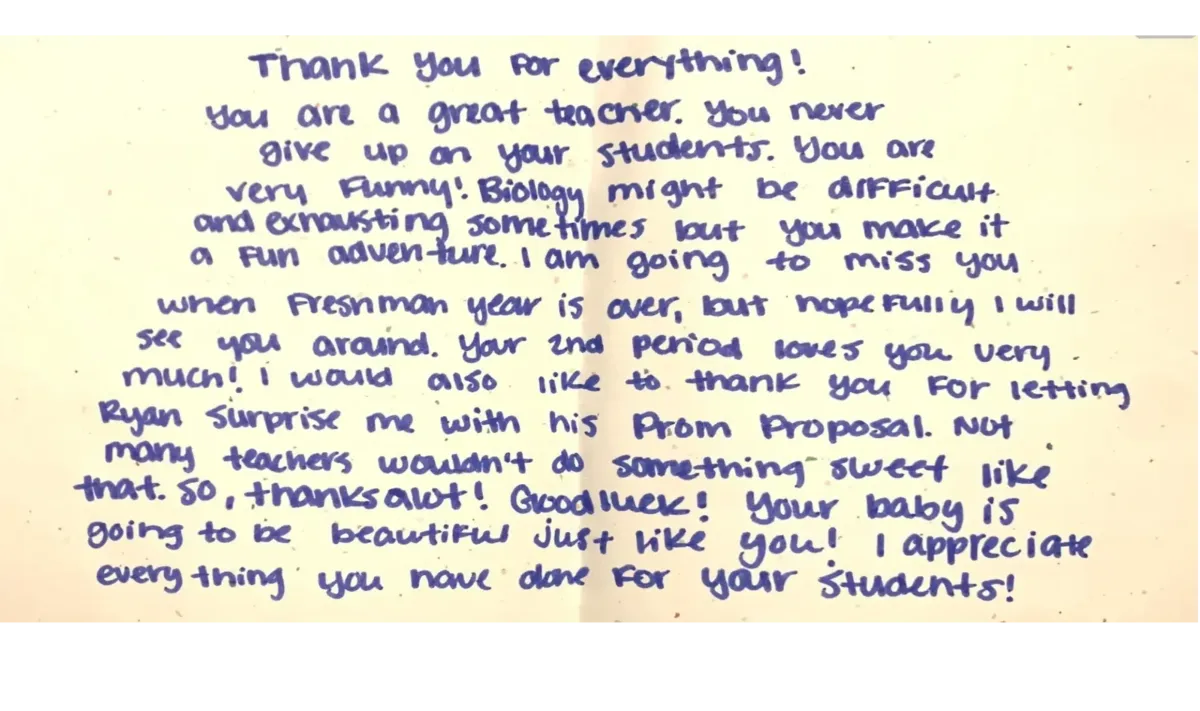 Thank you for everything!
You are a great teacher. You never
give up on your students. You are
very funny! Biology might be difficult
and exhausting sometimes but you make it
a fun adventure. I am going to miss you
when freshman year is over, but hopefully I will
see you around. Your 2nd period loves you very
much! I would also like to thank you for letting
Ryan surprise me with his Prom Proposal. Not
many teachers wouldn't do something sweet like
that. So, thanks alot! Good luck! Your baby is
going to be beautiful just like you! I appreciate
everything you have done for your students!